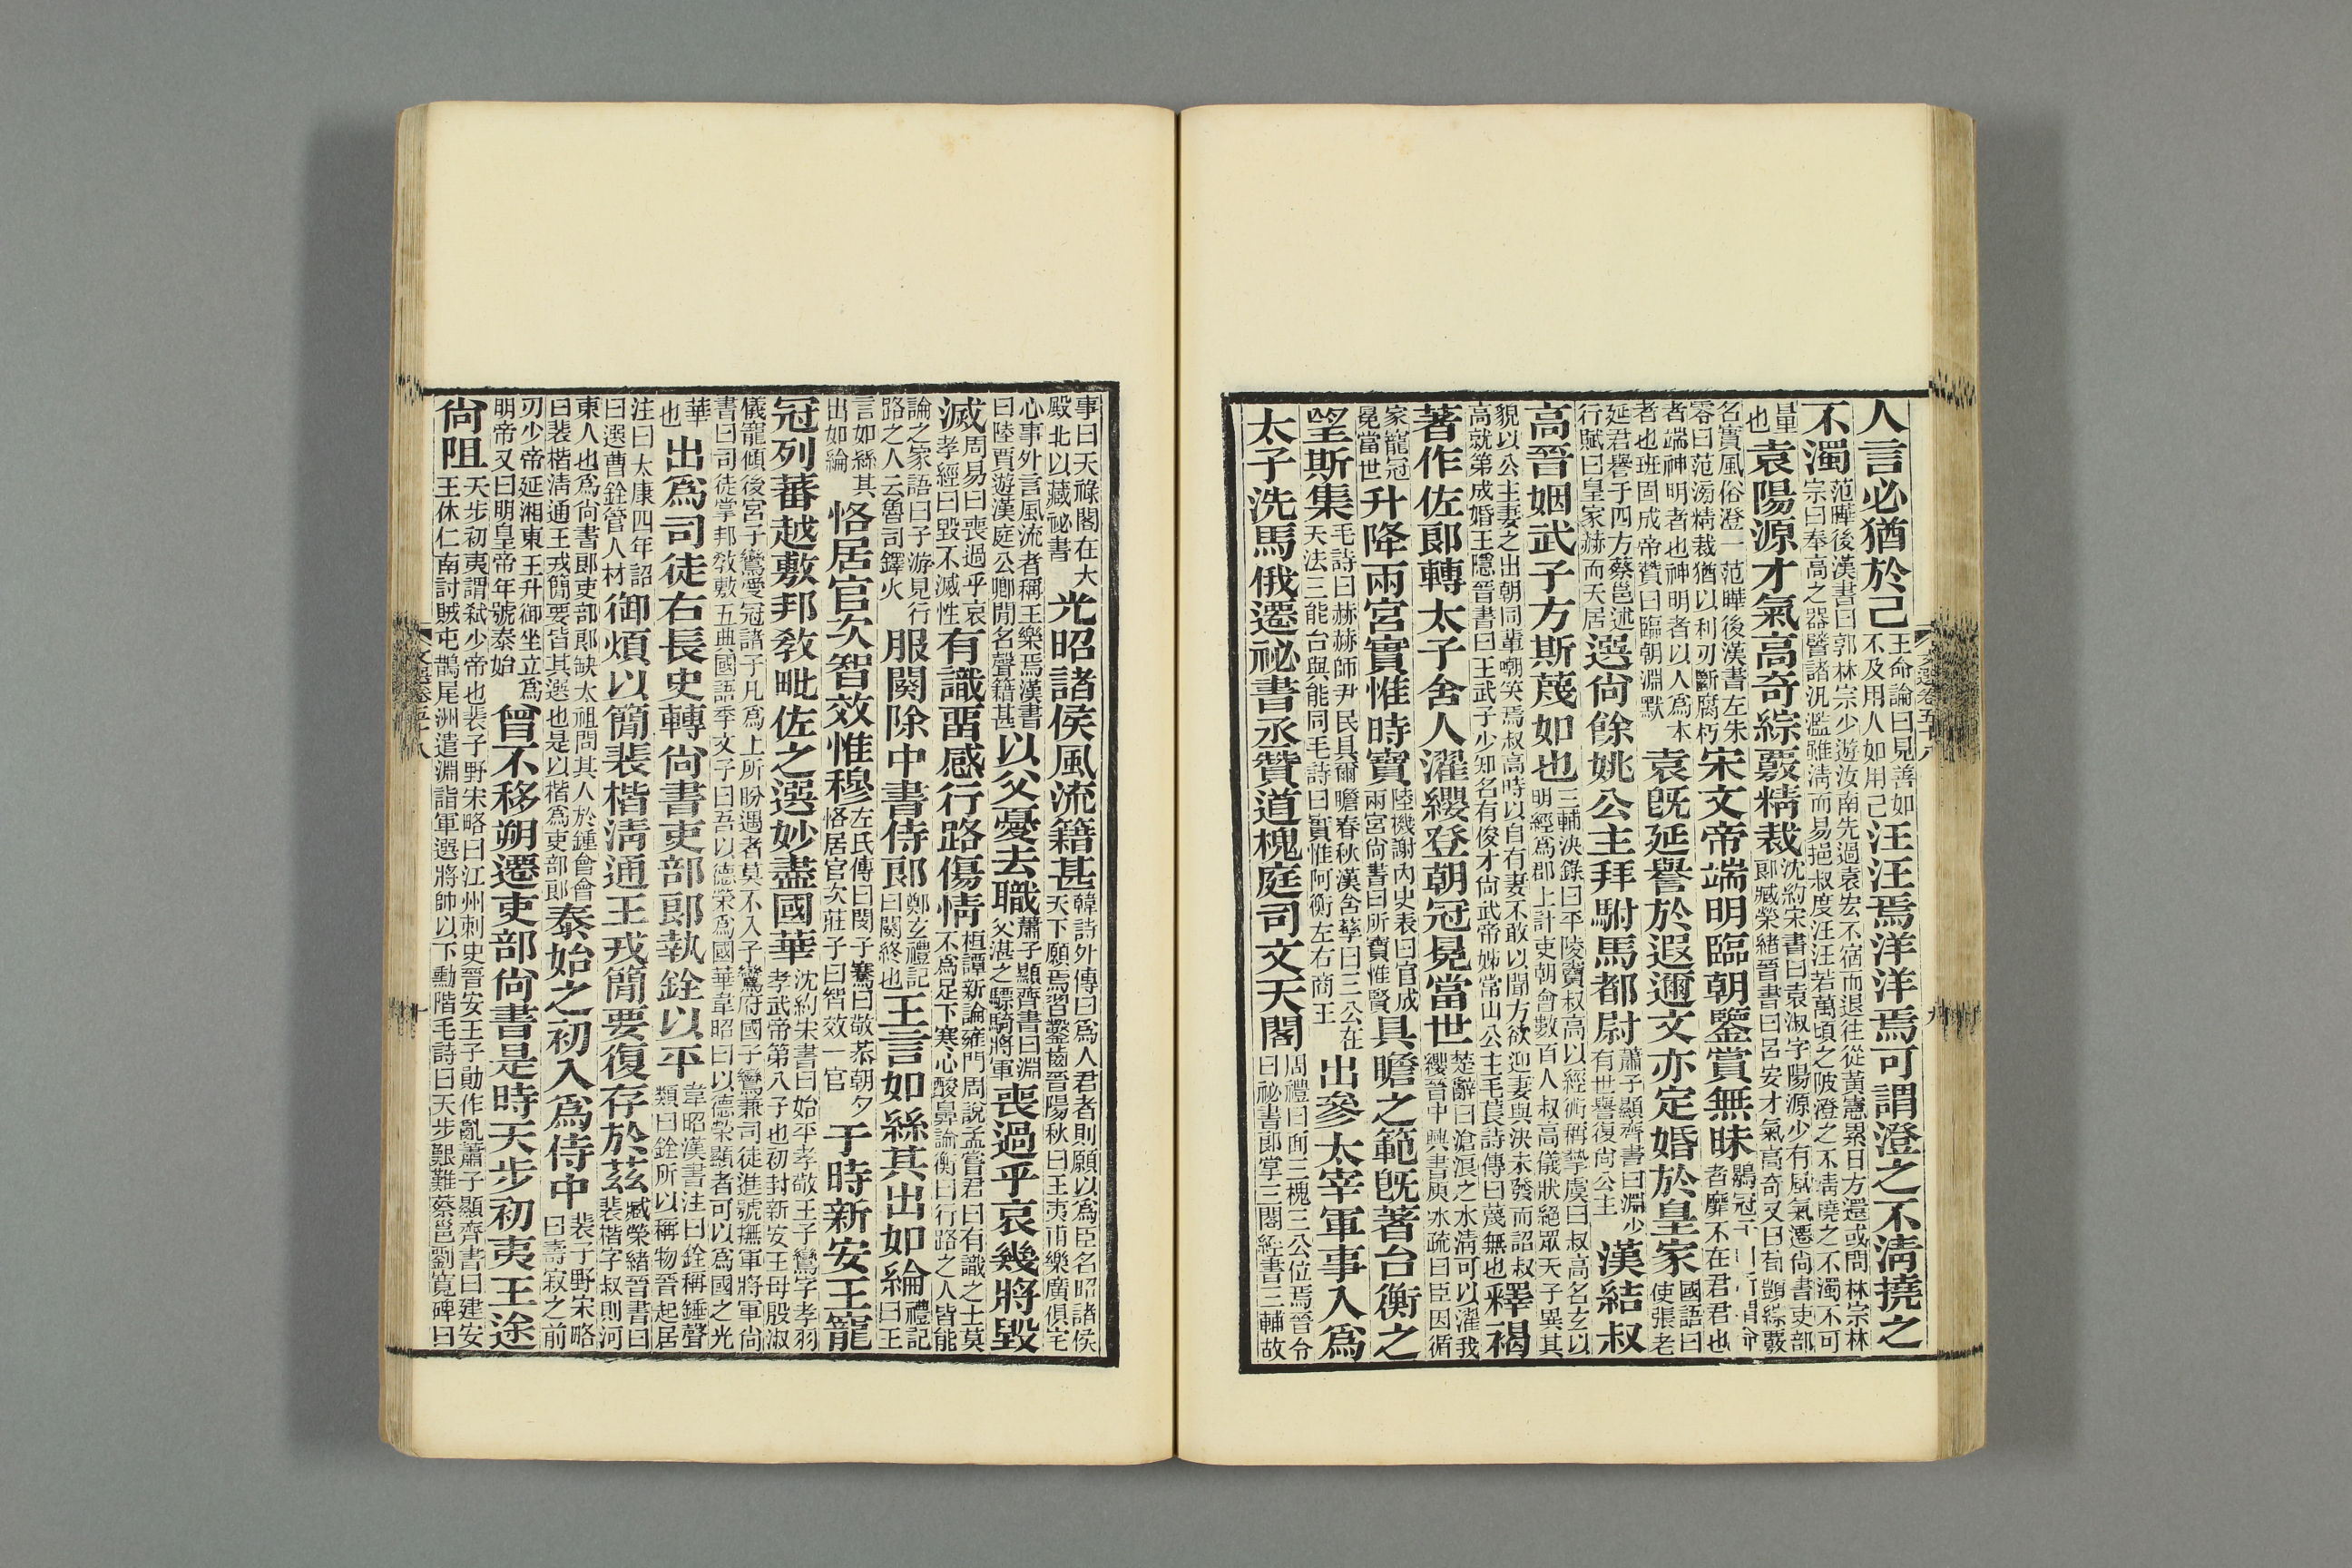 人言必猶於己王命論曰見善如不及用人如用己汪汪焉洋洋焉可謂澄之不淸撓之
不濁范曄後漢書曰郭林宗少遊汝南先過袁宏不宿而退往從黃憲累日方還或問林宗林宗曰奉高之器譬諸汎濫雖淸而易挹叔度汪汪若萬頃之陂澄之不淸撓之不濁不可
量也袁陽源才氣高奇綜覈精裁沈約宋書曰袁淑字陽源少有風氣遷尙書吏部郎臧榮緒晉書曰呂安才氣高奇又曰荀顗綜覈
名實風俗澄一范曄後漢書左朱零曰范滂精裁猶以利刃斷腐朽宋文帝端明臨朝鑒賞無昧鶡冠命者靡不在君君也
者端神明者也神明者以人爲本者也班固成帝贊曰臨朝淵默袁旣延譽於遐邇文亦定婚於皇家國語曰使張老
延君譽于四方蔡邕述行賦曰皇家赫而天居選尙餘姚公主拜駙馬都尉蕭子顯齊書曰淵少有世譽復尙公主漢結叔
高晉姻武子方斯蔑如也三輔決錄曰平陵竇叔高以經術稱摯虞曰叔高名玄以明經爲郡上計吏朝會數百人叔高儀狀絕眾天子異其
貌以公主妻之出朝同輩嘲笑焉叔高時以自有妻不敢以聞方欲迎妻與決未發而詔叔高就第成婚王隱晉書曰王武子少知名有俊才尙武帝姊常山公主毛萇詩傳曰蔑無也釋褐
著作佐郎轉太子舍人濯纓登朝冠冕當世楚辭曰滄浪之水淸可以濯我纓晉中興書庾冰疏曰臣因循
家寵冠冕當世升降兩宮實惟時寶陸機謝內史表曰官成兩宮尙書曰所寶惟賢具瞻之範旣著台衡之
望斯集毛詩曰赫赫師尹民具爾瞻春秋漢含孳曰三公在天法三能台與能同毛詩曰實惟阿衡左右商王出參太宰軍事入爲
太子洗馬俄遷祕書丞贊道槐庭司文天閣周禮曰面三槐三公位焉晉令曰祕書郎掌三閣經書三輔故
事曰天祿閣在大殿北以藏祕書光昭諸侯風流籍甚韓詩外傳曰爲人君者則願以爲臣名昭諸侯天下願焉習鑿齒晉陽秋曰王夷甫樂廣俱宅
心事外言風流者稱王樂焉漢書曰陸賈遊漢庭公卿閒名聲籍甚以父憂去職蕭子顯齊書曰淵父湛之驃騎將軍喪過乎哀幾將毀
滅周易曰喪過乎哀孝經曰毀不滅性有識畱感行路傷情桓譚新論雍門周說孟嘗君曰有識之士莫不爲足下寒心酸鼻論衡曰行路之人皆能
論之家語曰子游見行路之人云魯司鐸火服闋除中書侍郎鄭玄禮記曰闋終也王言如絲其出如綸禮記曰王
言如絲其出如綸恪居官次智效惟穆左氏傳曰閔子騫曰敬恭朝夕恪居官次莊子曰智效一官于時新安王寵
冠列蕃越敷邦敎毗佐之選妙盡國華沈約宋書曰始平孝敬王子鸞字孝羽孝武帝第八子也初封新安王母殷淑
儀寵傾後宮子鸞愛冠諸子凡爲上所盼遇者莫不入子鸞府國子鸞兼司徒進號撫軍將軍尙書曰司徒掌邦敎敷五典國語季文子曰吾以德榮爲國華韋昭曰以德榮顯者可以爲國之光
華也出爲司徒右長史轉尙書吏部郎執銓以平韋昭漢書注曰銓稱錘聲類曰銓所以稱物晉起居
注曰太康四年詔曰選曹銓管人材御煩以簡裴楷淸通王戎簡要復存於茲臧榮緒晉書曰裴楷字叔則河
東人也爲尙書郎吏部郎缺太祖問其人於鍾會會曰裴楷淸通王戎簡要皆其選也是以楷爲吏部郎泰始之初入爲侍中裴子野宋略曰壽寂之前
刃少帝延湘東王升御坐立爲明帝又曰明皇帝年號泰始曾不移朔遷吏部尙書是時天步初夷王途
尙阻天步初夷謂弒少帝也裴子野宋略曰江州刺史晉安王子勛作亂蕭子顯齊書曰建安王休仁南討賊屯鵲尾洲遣淵詣軍選將帥以下勳階毛詩曰天步艱難蔡邕劉寬碑曰